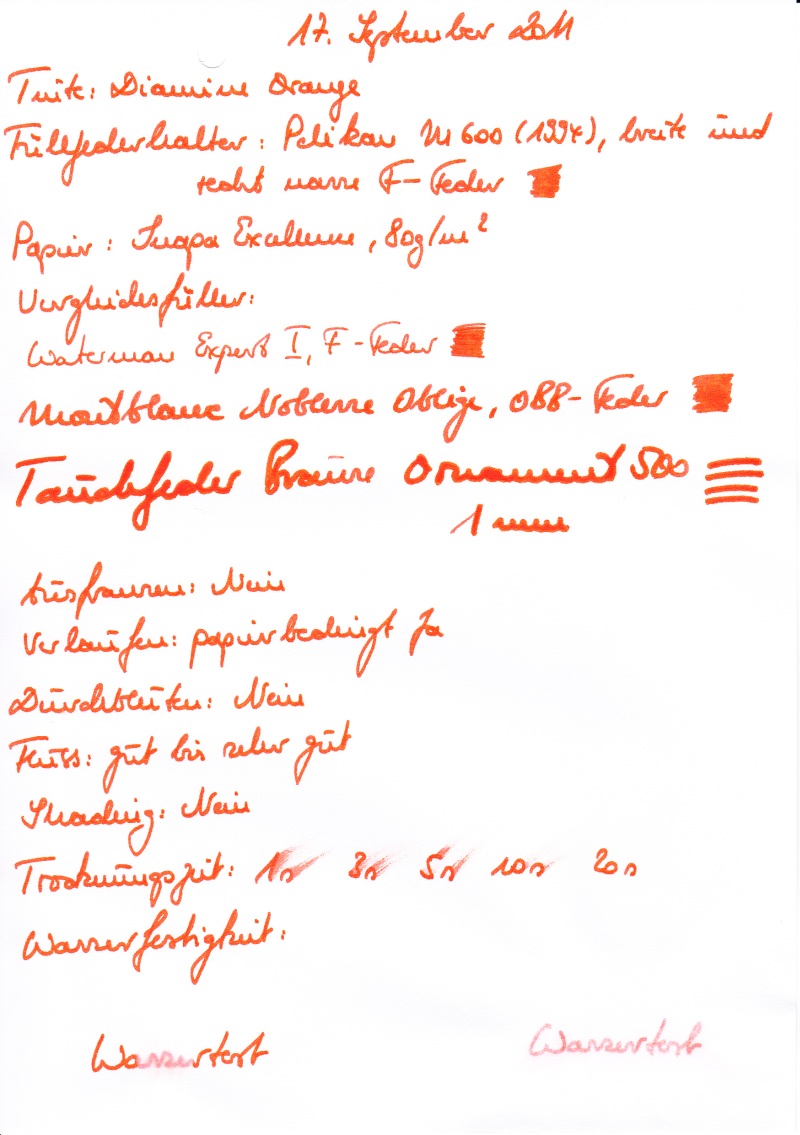 17. September 2011
Tinte: Diamine Orange
Füllfederhalter: Pelikan M 600 (1994), breite und
recht nasse F-Feder
Papier: Inapa Excellence, 80g/m²
Vergleichsfüller:
Waterman Expert I, F-Feder
Montblanc Noblesse Oblige, OBB-Feder
Tauchfeder Brause Ornament 500
1 mm
Ausfransen: Nein
Verlaufen: papierbedingt Ja
Durchbluten: Nein
Fluss: gut bis sehr gut
Shading: Nein
Trocknungszeit: 1s 3s 5s 10s 20s
Wasserfestigkeit:
Wassertest Wassertest